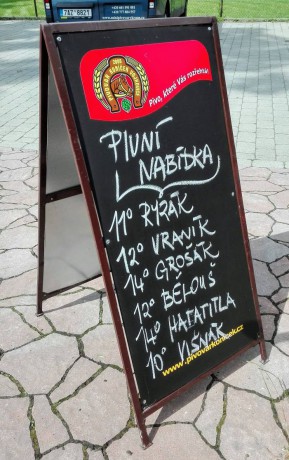 PIVOVAR KONÍČEK
Pivo, které Vás rozřehtá!
PIVNÍ
NABÍDKA
11° RYZÁK
12° VRANÍK
14° GROŠÁK
12° BĚLOUŠ
14° HATATITLA
10° VIŠŇÁK
www.pivovarkonicek.cz